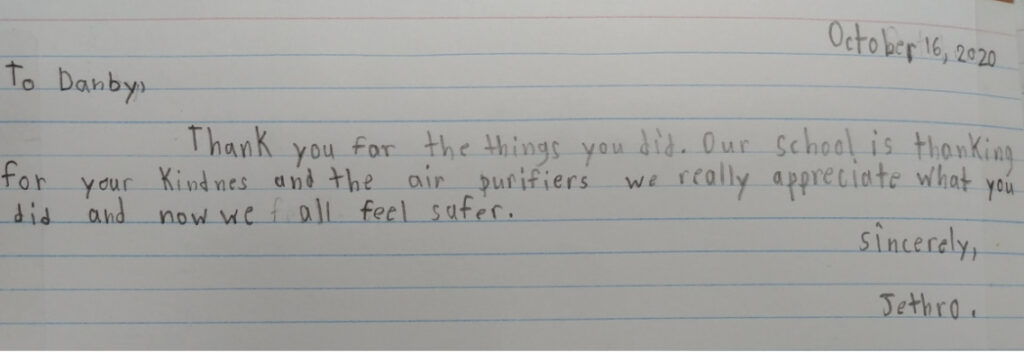 October 16, 2020
To Danby,
Thank you for the things you did. Our school is thanking
for your Kindnes and the air purifiers we really appreciate what you
did and now we all feel safer.
sincerely,
Jethro.